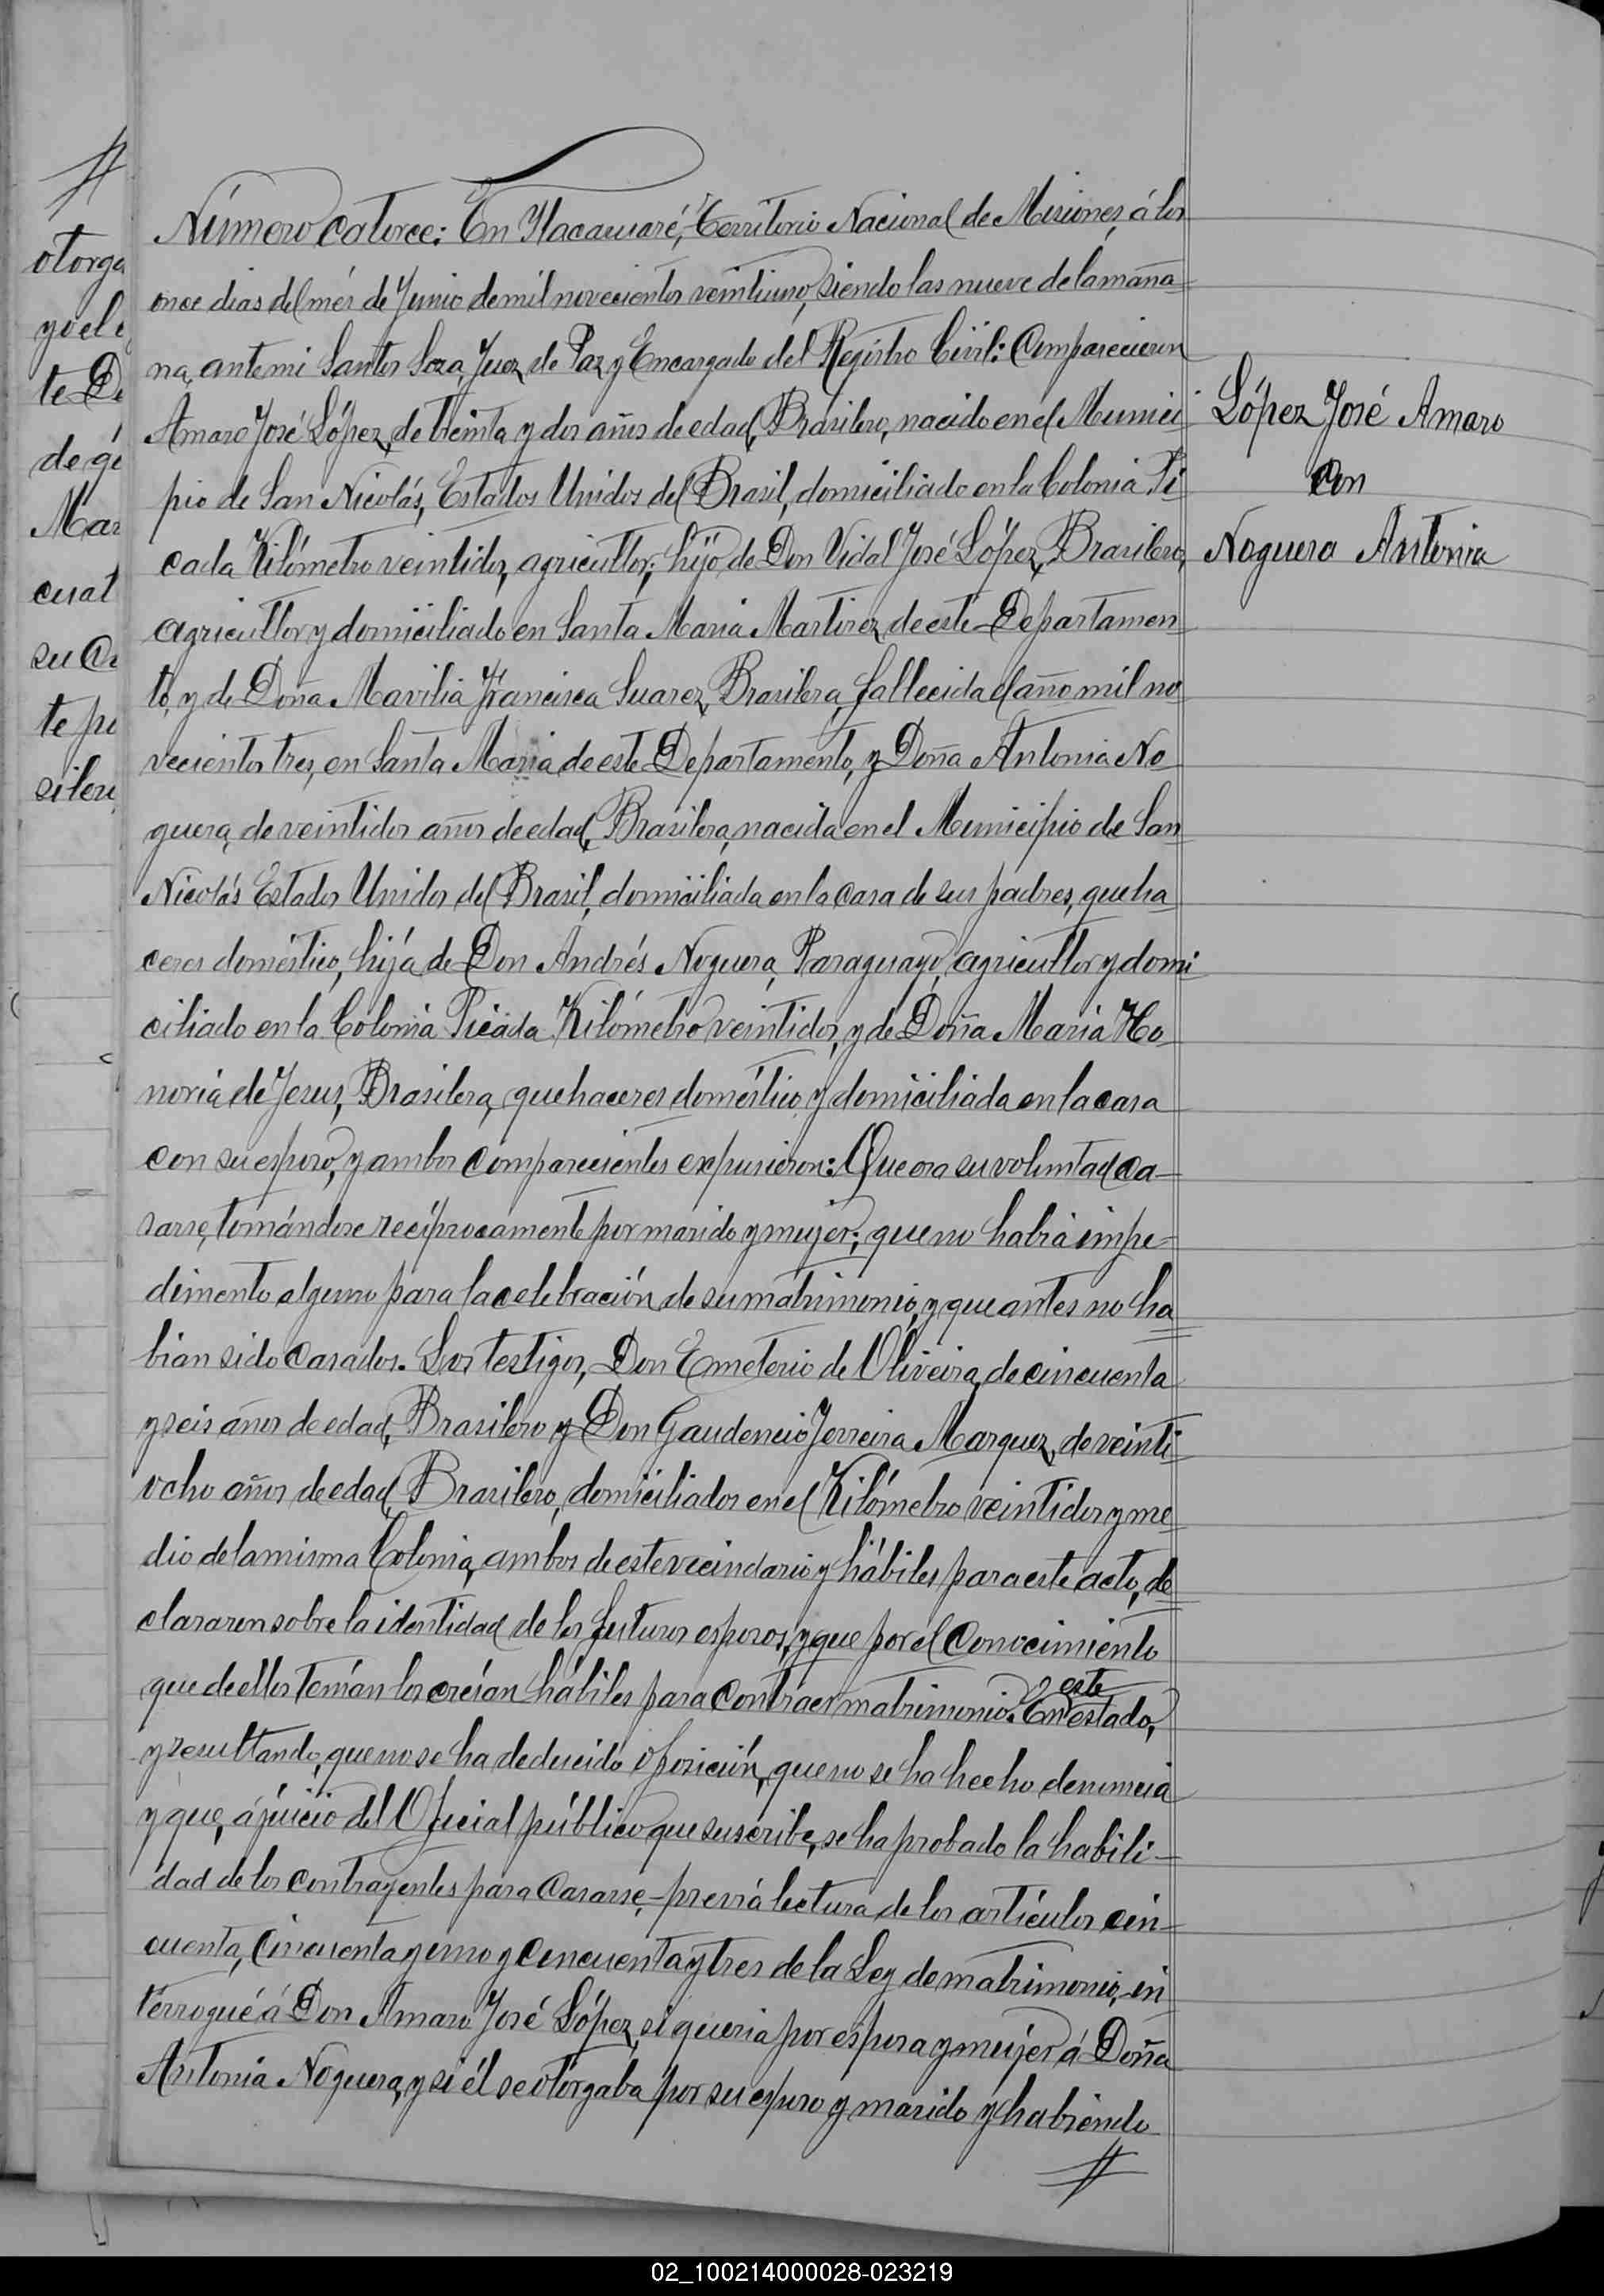 otorga
yo el e
te D
de gé
Mar
cuat
su Ca
te po
silen
Número catorce: En Itacaruaré, Territorio Nacional de Misiones, á los
once dias del més de Junio de mil novecientos veintiuno, siendo las nueve de la maña-
na, ante mi Santos Soza, Juez de Paz y Encargado del Registro Civil: Comparecieron
Amaro José López, de treinta y dos años de edad, Brasilero, nacido en el Munici-
pio de San Nicolás, Estados Unidos del Brasil, domiciliado en la Colonia Pi-
cada Kilómetro veintidos, agricultor; hijo de Don Vidal José López, Brasilero,
agricultor y domiciliado en Santa Maria Martirez de este Departamen-
to, y de Doña Mavilia Francisca Suarez, Brasilera, fallecida el año mil no-
vecientos tres, en Santa Maria de este Departamento, y Doña Antonia No-
guera, de veintidos años de edad, Brasilera, nacida en el Municipio de San
Nicolás Estados Unidos del Brasil, domiciliada en la casa de sus padres, queha-
ceres doméstico, hija de Don Andrés Noguera, Paraguayo, agricultor y domi-
ciliado en la Colonia Picada Kilómetro veintidos, y de Doña Maria Ho-
noria de Jesus, Brasilera, quehaceres doméstico y domiciliada en la casa
con su esposo, y ambos comparecientes expusieron: Que era su voluntad ca-
sarse, tomándose recíprocamente por marido y mujer; que no habia impe-
dimento alguno para la celebración de su matrimonio, y que antes no ha-
bian sido casados. Los testigos, Don Emeterio de Oliveira, de cincuenta
y seis años de edad, Brasilero y Don Gaudencio Ferreira Marquez, de veinti-
ocho años de edad, Brasilero, domiciliados en el Kilómetro veintidos y me-
dio de la misma Colonia, ambos de este vecindario y hábiles para este acto, de-
clararon sobre la identidad de los futuros esposos, y que por el conocimiento
que de ellos tenían los creían hábiles para contraer matrimonio. En este estado,
y resultando, que no se ha deducido oposición, que no se ha hecho denuncia
y que, á juicio del Oficial público que suscribe, se ha probado la habili-
dad de los contrayentes para casarse, previa lectura de los artículos cin-
cuenta, cincuenta y uno y cincuenta y tres de la Ley de matrimonio, in-
terrogué á Don Amaro José López, si queria por esposa y mujer á Doña
Antonia Noguera, y si él se otorgaba por su esposo y marido y habiendo
López José Amaro
con
Noguera Antonia
02_100214000028-023219